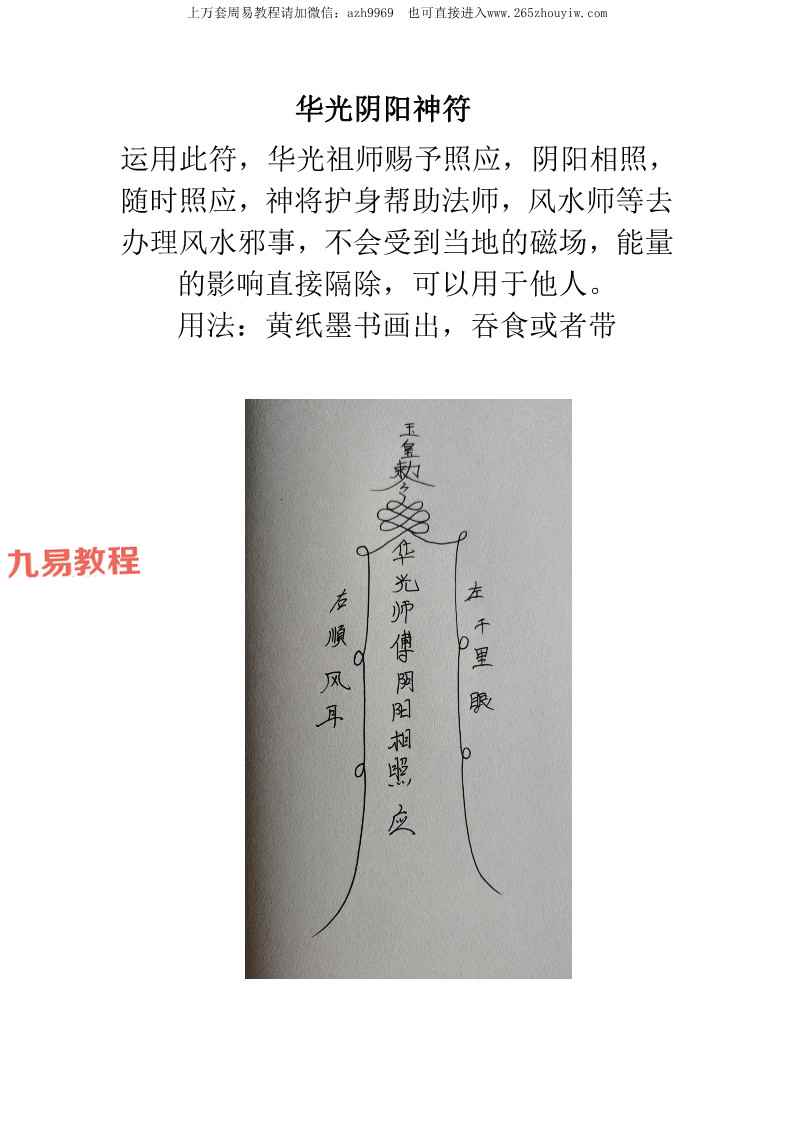 上万套周易教程请加微信：azh9969 也可直接进入www.265zhouyiw.com
华光阴阳神符
运用此符，华光祖师赐予照应，阴阳相照，
随时照应，神将护身帮助法师，风水师等去
办理风水邪事，不会受到当地的磁场，能量
的影响直接隔除，可以用于他人。
用法：黄纸墨书画出，吞食或者带
九易教程
玉皇勅令
华光师傅阴阳相照应
左千里眼
右順风耳